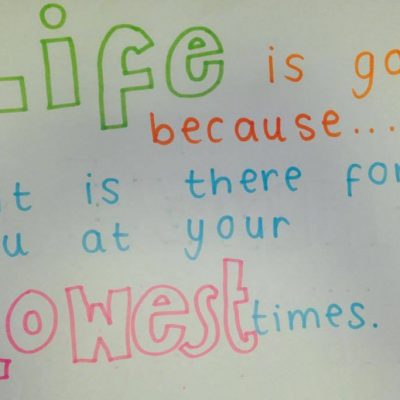 Life is go
because....
it is there for
ou at your
Lowest times.